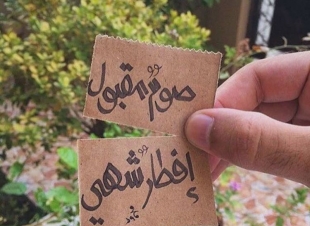 صومٌ مقبول
إفطارٌ شهي